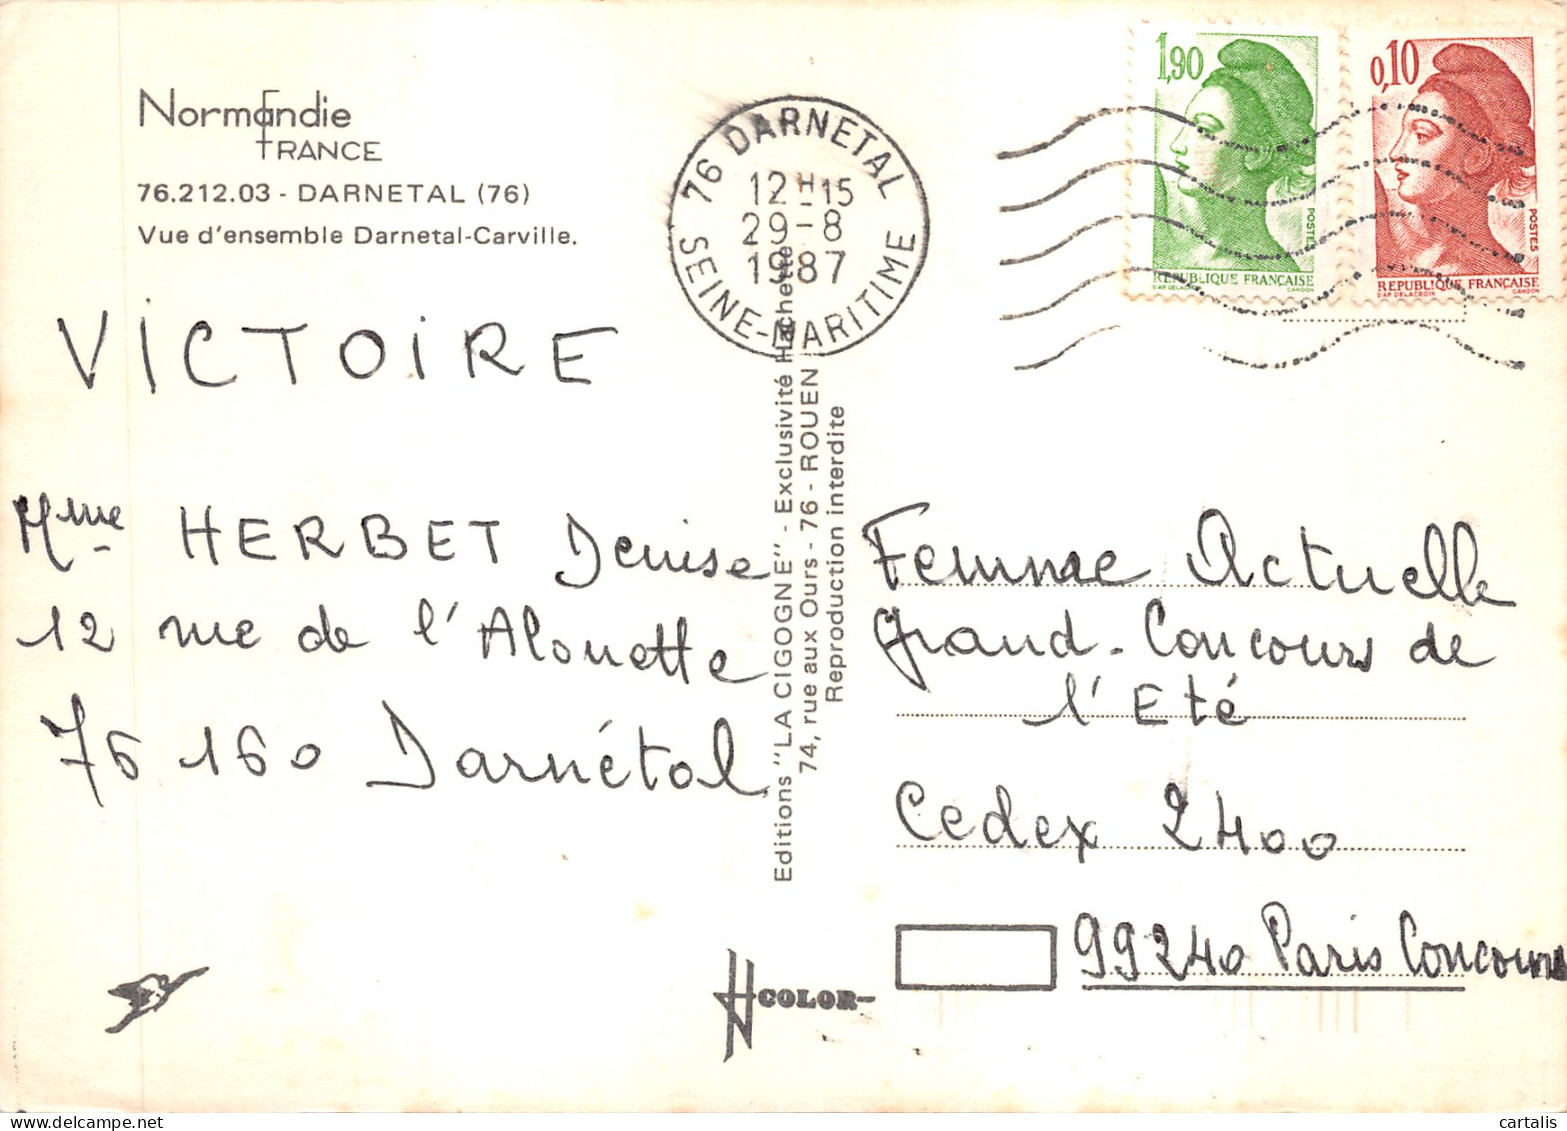 Normandie
FRANCE
76.212.03 - DARNETAL (76)
Vue d'ensemble Darnetal-Carville.
VICTOIRE
Mme HERBET Denise
12 rue de l'Alouette
76 160 Darnétal
76 DARNETAL
12H15
29-8
1987
SEINE-MARITIME
Editions "LA CIGOGNE" - Exclusivité Hachette
74, rue aux Ours - 76 - ROUEN
Reproduction interdite
1,90
POSTES
REPUBLIQUE FRANÇAISE
D'AP. DELACROIX GANDON
0,10
POSTES
REPUBLIQUE FRANÇAISE
D'AP. DELACROIX GANDON
Femme Actuelle
Grand-Concours de
l'Eté
Cedex 2400
99240 Paris Concours
COLOR
cartalis